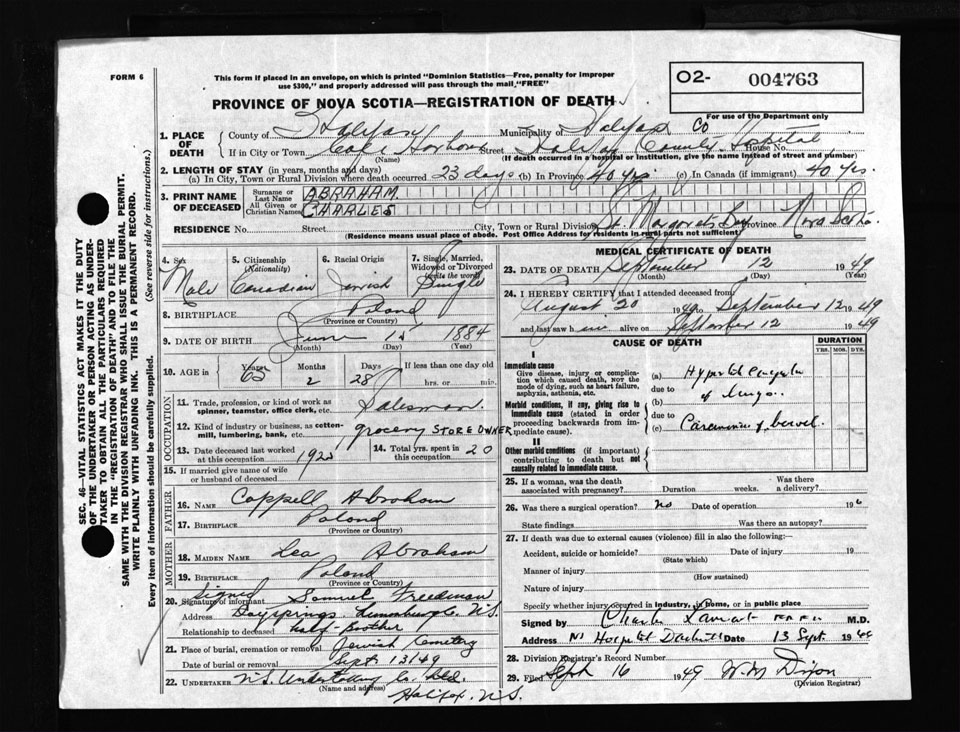 FORM 6
This form if placed in an envelope, on which is printed "Dominion Statistics—Free, penalty for improper
use $300," and properly addressed will pass through the mail, "FREE"
O2- 004763
For use of the Department only
PROVINCE OF NOVA SCOTIA—REGISTRATION OF DEATH
1. PLACE OF DEATH County of Halifax Municipality of Halifax Co
If in City or Town Cole Harbour Street Halifax County Hospital House No.
(Name) (If death occurred in a hospital or institution, give the name instead of street and number)
2. LENGTH OF STAY (in years, months and days)
(a) In City, Town or Rural Division where death occurred 23 days (b) In Province 40 yrs (c) In Canada (if immigrant) 40 yrs.
3. PRINT NAME OF DECEASED
Surname or Last Name ABRAHAM
All Given or Christian Names CHARLES
RESIDENCE No. Street City, Town or Rural Division St. Margarets Bay Province Nova Scotia
(Residence means usual place of abode. Post Office Address for residents in rural parts not sufficient)
4. Sex Male
5. Citizenship (Nationality) Canadian
6. Racial Origin Jewish
7. Single, Married, Widowed or Divorced (write the word) Single
8. BIRTHPLACE Poland
(Province or Country)
9. DATE OF BIRTH June 15 1884
(Month) (Day) (Year)
10. AGE in Years 65 Months 2 Days 28 If less than one day old
hrs. or min.
OCCUPATION
11. Trade, profession, or kind of work as spinner, teamster, office clerk, etc. Salesman.
12. Kind of industry or business, as cotten-mill, lumbering, bank, etc. grocery STORE OWNER
13. Date deceased last worked at this occupation
14. Total yrs. spent in this occupation 20
15. If married give name of wife or husband of deceased
FATHER
16. Name Coppell Abraham
17. Birthplace Poland
(Province or Country)
MOTHER
18. Maiden Name Lea Abraham
19. Birthplace Poland
(Province or Country)
20. Signature of informant Signed Samuel Freedman
Address Dayspring Lunenburg Co. N.S.
Relationship to deceased Half-Brother
21. Place of burial, cremation or removal Jewish Cemetery
Date of burial or removal Sept 13/49
22. UNDERTAKER N.S. Undertaking Co. Ltd.
(Name and address) Halifax, N.S.
MEDICAL CERTIFICATE OF DEATH
23. DATE OF DEATH September 12 1949
(Month) (Day) (Year)
24. I HEREBY CERTIFY that I attended deceased from
August 20 1949 September 12 1949
and last saw him alive on September 12 1949
CAUSE OF DEATH
DURATION
YRS. MOS. DYS.
I
Immediate cause
Give disease, injury or complication which caused death, NOT the mode of dying, such as heart failure, asphyxia, asthenia, etc.
(a)
due to
(b) of lungs.
due to
(c) Carcinoma of bowel.
Morbid conditions, if any, giving rise to immediate cause (stated in order proceeding backwards from immediate cause).
II
Other morbid conditions (if important) contributing to death but not causally related to immediate cause.
25. If a woman, was the death associated with pregnancy? Duration weeks. Was there a delivery?
26. Was there a surgical operation? No Date of operation 19
State findings Was there an autopsy?
27. If death was due to external causes (violence) fill in also the following:
Accident, suicide or homicide? Date of injury 19
(State which)
Manner of injury
(How sustained)
Nature of injury
Specify whether injury occurred in industry, in home, or in public place
Signed by Charles M.D.
Address NS Hospital Date 13 Sept. 19
28. Division Registrar's Record Number
29. Filed Sept 16 1949 W. M. Dixon
(Division Registrar)
SEC. 46—VITAL STATISTICS ACT MAKES IT THE DUTY
OF THE UNDERTAKER OR PERSON ACTING AS UNDER-
TAKER TO OBTAIN ALL THE PARTICULARS REQUIRED
IN THE "REGISTRATION OF DEATH" AND TO FILE THE
SAME WITH THE DIVISION REGISTRAR WHO SHALL ISSUE THE BURIAL PERMIT.
WRITE PLAINLY WITH UNFADING INK. THIS IS A PERMANENT RECORD.
Every item of information should be carefully supplied. (See reverse side for instructions.)